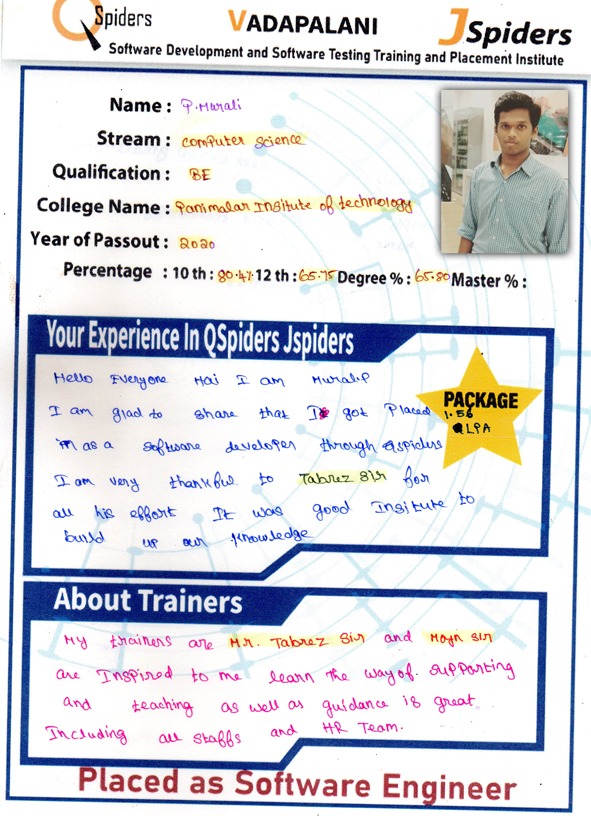 QSpiders VADAPALANI JSpiders
Software Development and Software Testing Training and Placement Institute
Name : P.Murali
Stream : Computer Science
Qualification : BE
College Name : Panimalar Institute of technology
Year of Passout : 2020
Percentage : 10 th : 80.4% 12 th : 65.75 Degree % : 65.80 Master % :
Your Experience In QSpiders Jspiders
Hello Everyone Hai I am Murali.P
I am glad to share that I got Placed
as a software developer through Qspiders
I am very thankful to Tabrez Sir for
all his effort It was good Insitute to
build up our knowledge
PACKAGE
1.56
LPA
About Trainers
My trainers are Mr. Tabrez Sir and Moyn sir
are Inspired to me learn the way of supporting
and teaching as well as guidance is great
Including all staffs and HR Team.
Placed as Software Engineer